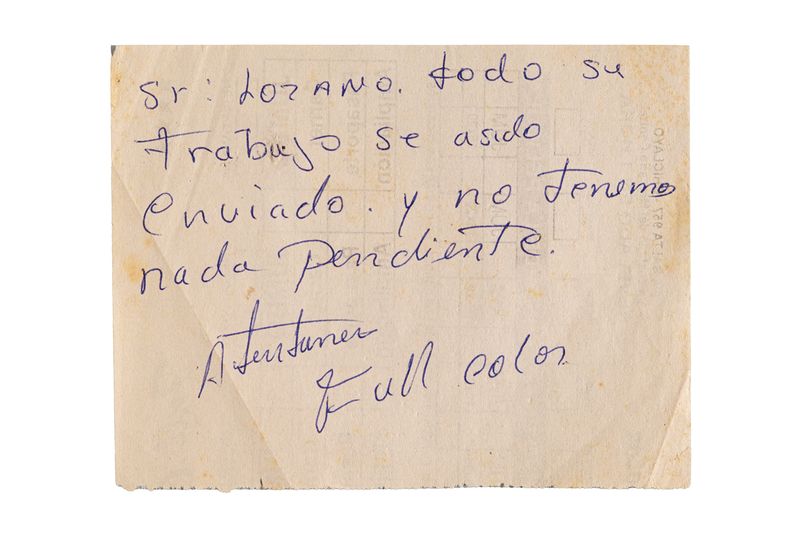 Sr: LOZANO. todo su
trabajo se asido
enviado. y no tenemo
nada Pendiente.
Full color